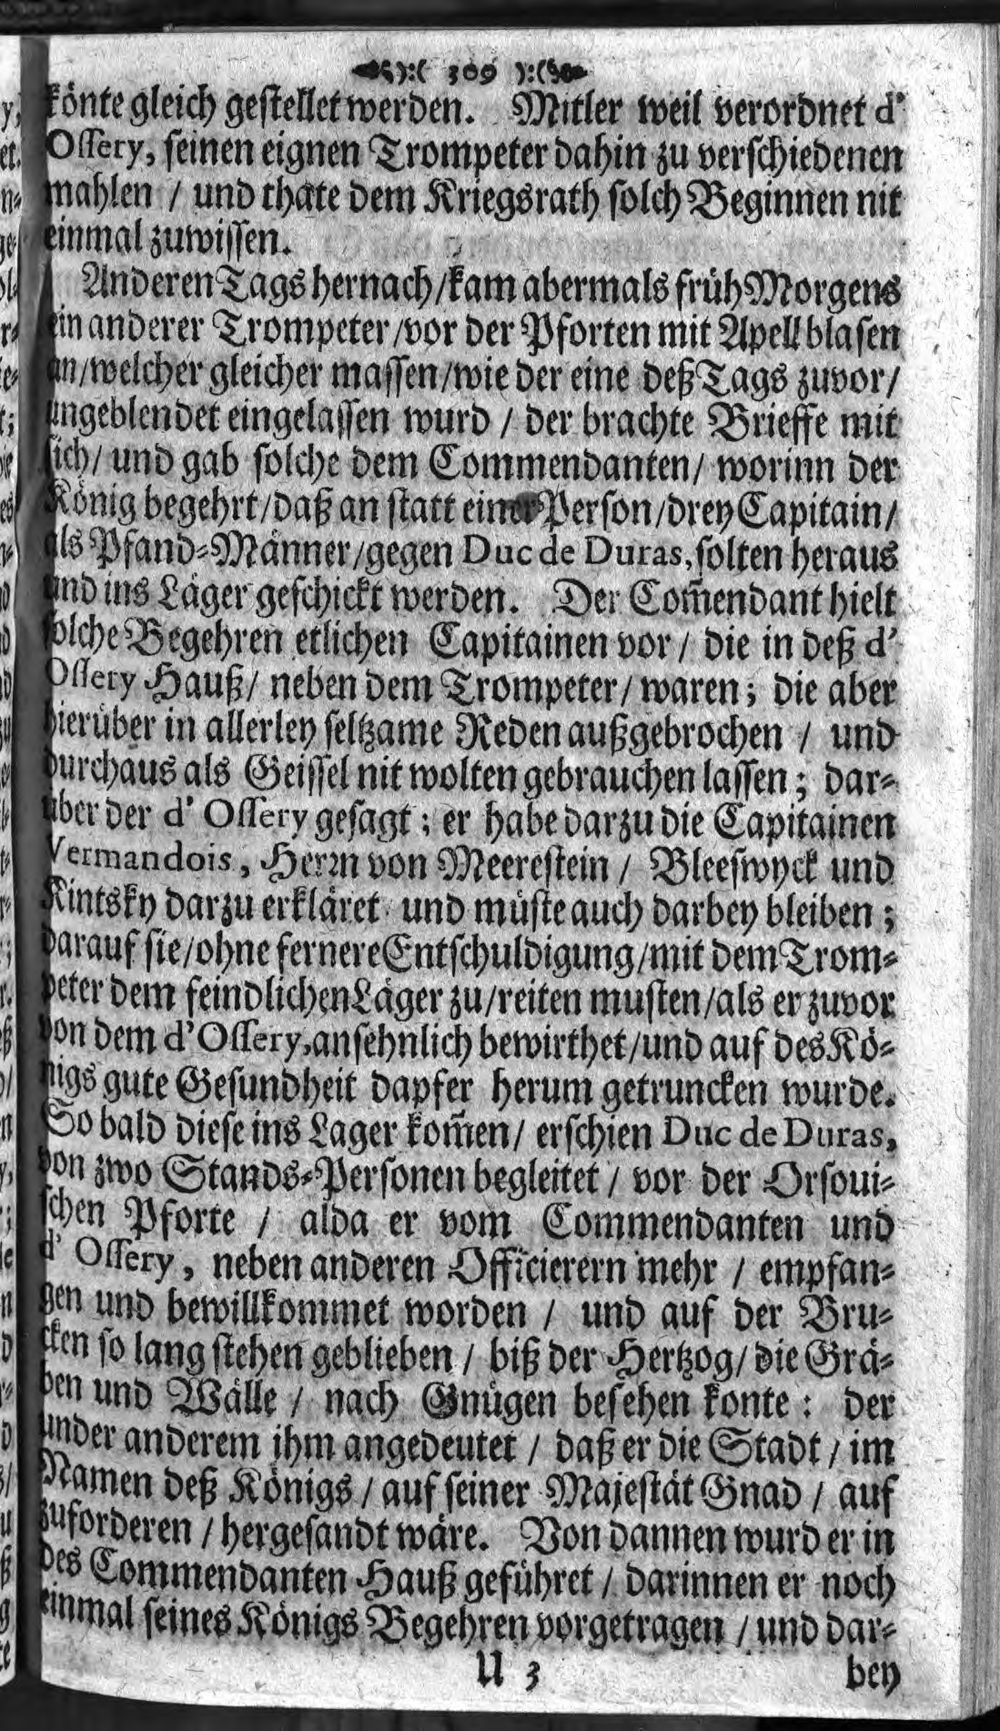 ):( 309 ):(
könte gleich gestellet werden. Mitler weil verordnet d'
Ossery, seinen eignen Trompeter dahin zu verschiedenen
mahlen / und thäte dem Kriegsrath solch Beginnen nit
einmal zuwissen.
Anderen Tags hernach / kam abermals früh Morgens
ein anderer Trompeter / vor der Pforten mit Apell blasen
an / welcher gleicher massen / wie der eine deß Tags zuvor /
ungeblendet eingelassen wurd / der brachte Brieffe mit
sich / und gab solche dem Commendanten / worinn der
König begehrt / daß an statt einer Person / drey Capitain /
als Pfand-Männer / gegen Duc de Duras, solten heraus
und ins Läger geschickt werden. Der Com̃endant hielt
solche Begehren etlichen Capitainen vor / die in deß d'
Ossery Hauß / neben dem Trompeter / waren; die aber
hierüber in allerley seltzame Reden außgebrochen / und
durchaus als Geissel nit wolten gebrauchen lassen; dar-
über der d' Ossery gesagt; er habe darzu die Capitainen
Vermandois, Herrn von Meerestein / Bleeswyck und
Kintsky darzu erkläret und müste auch darbey bleiben;
darauf sie / ohne fernere Entschuldigung / mit dem Trom-
peter dem feindlichen Läger zu / reiten musten / als er zuvor
von dem d' Ossery, ansehnlich bewirthet / und auf des Kö-
nigs gute Gesundheit dapfer herum getruncken wurde.
So bald diese ins Lager kom̃en / erschien Duc de Duras,
von zwo Stands-Personen begleitet / vor der Orsoui-
schen Pforte / alda er vom Commendanten und
d' Ossery, neben anderen Officierern mehr / empfan-
gen und bewillkommet worden / und auf der Bru-
cken so lang stehen geblieben / biß der Hertzog / die Grä-
ben und Wälle / nach Gnügen besehen konte: der
under anderem ihm angedeutet / daß er die Stadt / im
Namen deß Königs / auf seiner Majestät Gnad / auf
zuforderen / hergesandt wäre. Von dannen wurd er in
des Commendanten Hauß geführet / darinnen er noch
einmal seines Königs Begehren vorgetragen / und dar-
U 3 bey